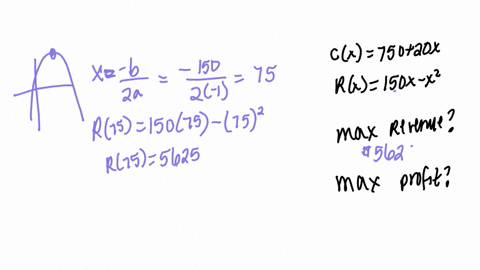 x = -b/2a = -150/2(-1) = 75
R(75) = 150(75) - (75)²
R(75) = 5625
C(x) = 750+20x
R(x) = 150x - x²
max Revenue?
$562
max profit?